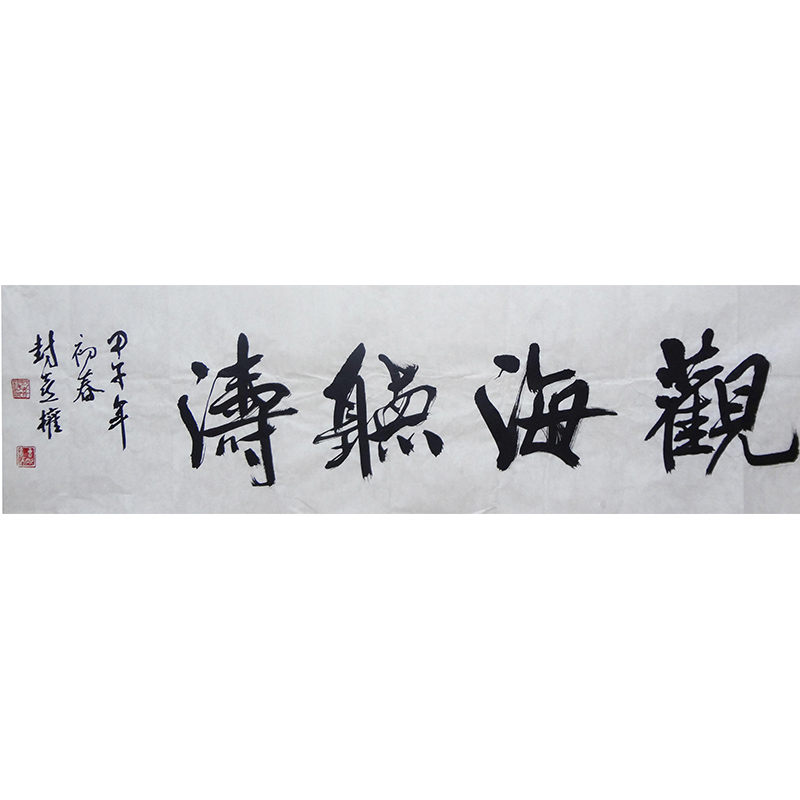 觀海聽濤
甲午年
初春
封志權